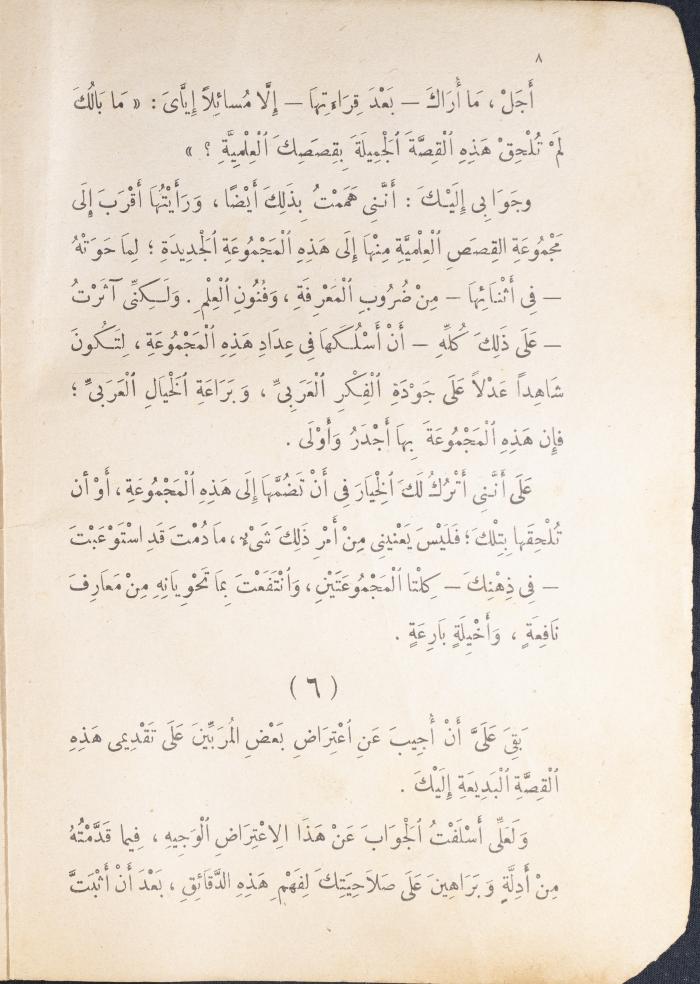 ٨
أَجَلْ ، مَا أُرَاكَ — بَعْدَ قِرَاءَتِهَا — إِلَّا مُسَائِلًا إِيَّاىَ : « مَا بَالُكَ
لَمْ تُلْحِقْ هَذِهِ الْقِصَّةَ الْجَمِيلَةَ بِقِصَصِكَ الْعِلْمِيَّةِ ؟ »
وجَوَابِى إِلَيْكَ : أَنَّنِى هَمَمْتُ بِذَلِكَ أَيْضًا ، وَرَأَيْتُهَا أَقْرَبَ إِلَى
مَجْمُوعَةِ القِصَصِ الْعِلْمِيَّةِ مِنْهَا إِلَى هَذِهِ الْمَجْمُوعَةِ الْجَدِيدَةِ ؛ لِمَا حَوَتْهُ
— فِى أَثْنَائِهَا — مِنْ ضُرُوبِ الْمَعْرِفَةِ ، وَفُنُونِ الْعِلْمِ . وَلَـكِنِّى آثَرْتُ
— عَلَى ذَلِكَ كُلِّهِ — أَنْ أَسْلُكَهَا فِى عِدَادِ هَذِهِ الْمَجْمُوعَةِ ، لِتَكُونَ
شَاهِداً عَدْلاً عَلَى جَوْدَةِ الْفِكْرِ الْعَرَبِىِّ ، وَبَرَاعَةِ الْخَيَالِ الْعَرَبِىِّ ؛
فإِن هَذِهِ الْمَجْمُوعَةَ بِهَا أَجْدَرُ وَأَوْلَى .
عَلَى أَنَّنِى أَتْرُكُ لَكَ الْخِيَارَ فِى أَنْ تَضُمَّهَا إِلَى هَذِهِ الْمَجْمُوعَةِ ، أَوْ أن
تُلْحِقَهَا بِتِلْكَ ؛ فَلَيْسَ يَعْنِينِى مِنْ أَمْرِ ذَلِكَ شَىْءٌ ، ما دُمْتَ قَدِ اسْتَوْعَبْتَ
— فِى ذِهْنِكَ — كِلْتا الْمَجْمُوعَتَيْنِ ، وَانْتَفَعْتَ بِمَا تَحْوِيَانِهِ مِنْ مَعَارِفَ
نَافِعَةٍ ، وَأَخْيِلَةٍ بَارِعَةٍ .
( ٦ )
بَقِىَ عَلَىَّ أَنْ أُجِيبَ عَنِ اعْتِرَاضِ بَعْضِ المُرَبِّينَ عَلَى تَقْدِيمِى هَذِهِ
الْقِصَّةِ الْبَدِيعَةِ إِلَيْكَ .
وَلَعَلِّى أَسْلَفْتُ الْجَوَابَ عَنْ هَذَا الِاعْتِرَاضِ الْوَجِيهِ ، فِيما قَدَّمْتُهُ
مِنْ أَدِلَّةٍ وَبَرَاهِينَ عَلَى صَلاَحِيَتِكَ لِفَهْمِ هَذِهِ الدَّقَائِقِ ، بَعْدَ أَنْ أَثْبَتَّ